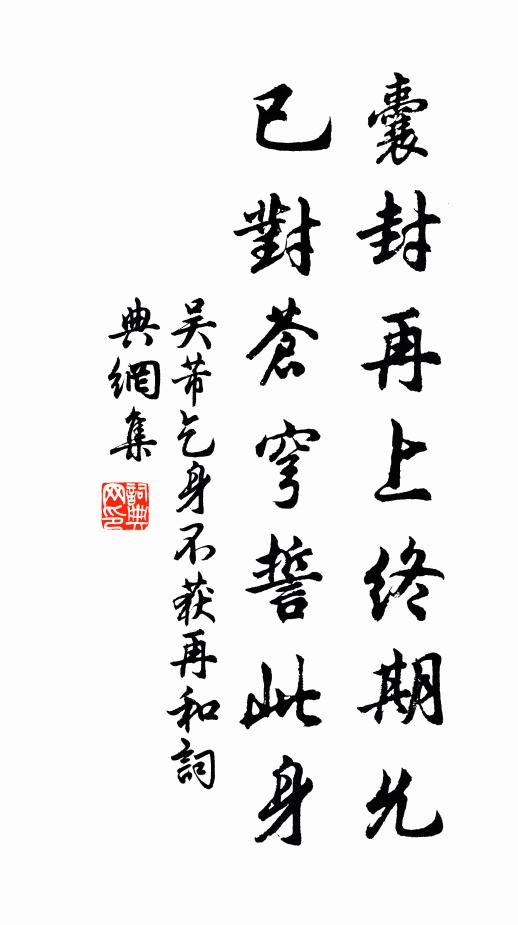 囊封再上終期允
已對蒼穹誓此身
吴芾乞身不获再和詞
典網集
詞典網印